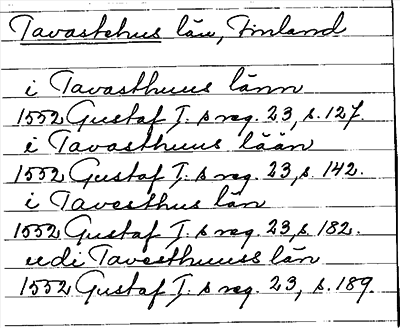 Tavastehus län, Finland
i Tavasthuus länn
1552 Gustaf I:s reg. 23, s. 127.
i Tavasthuus lään
1552 Gustaf I:s reg. 23, s. 142.
i Tavesthus län
1552 Gustaf I:s reg. 23, s. 182.
udi Tavesthuuss län
1552 Gustaf I:s reg. 23, s. 189.